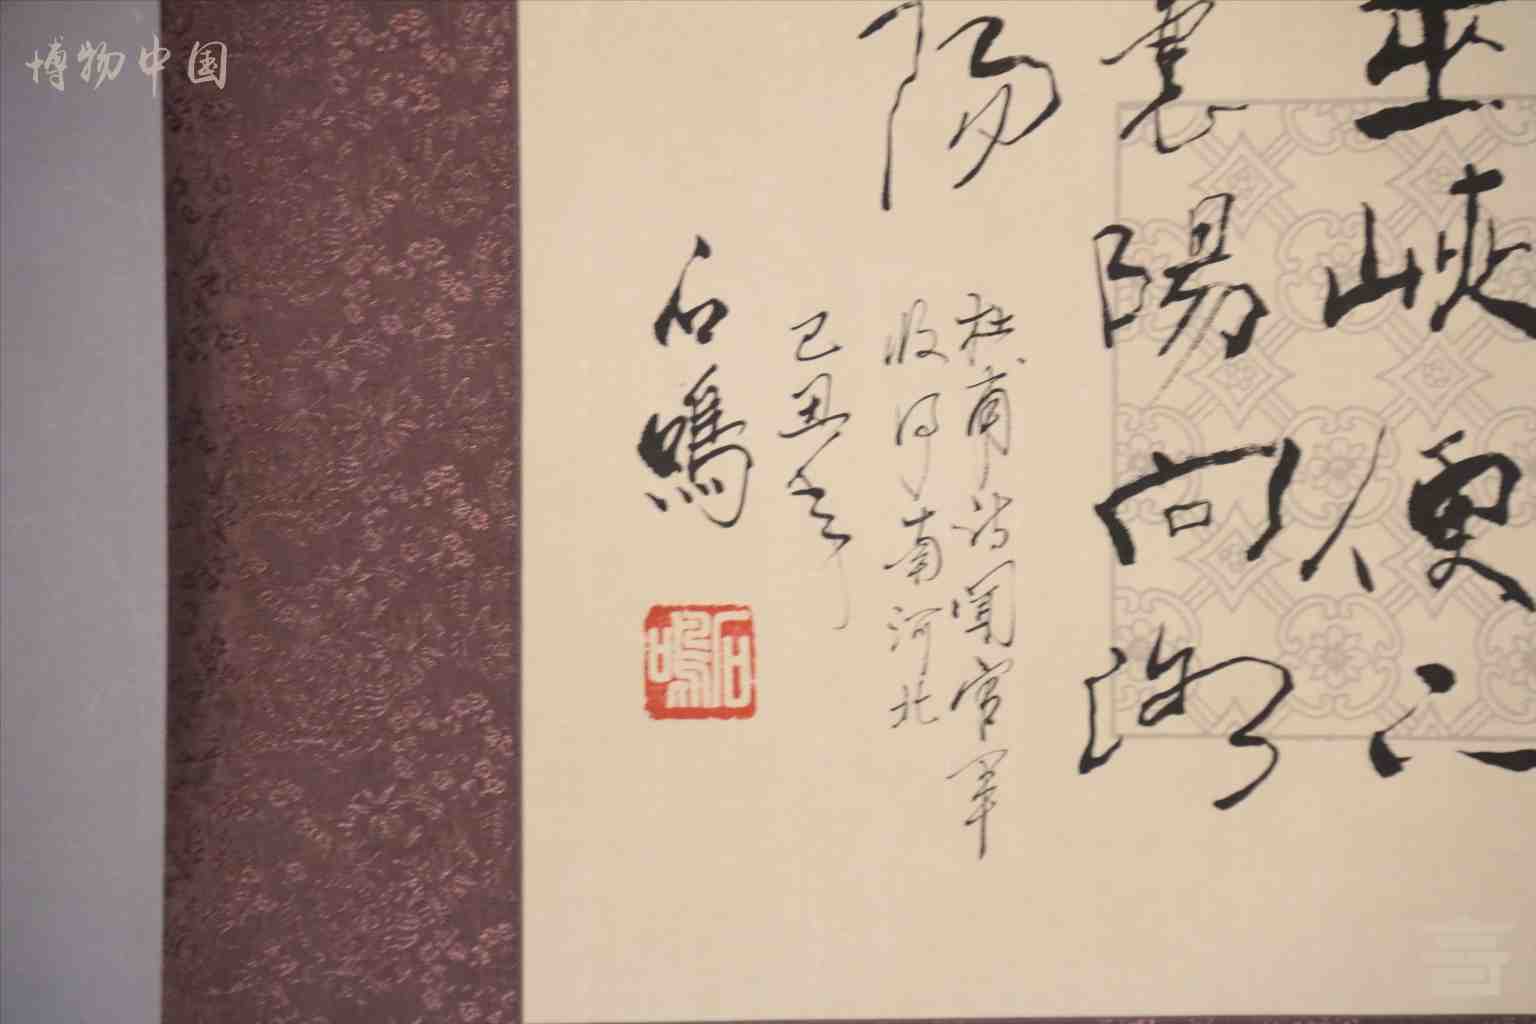 博物中国
巫峽便下
襄陽向洛
陽
杜甫詩聞官軍
收河南河北
己丑年
石鳴
石鳴